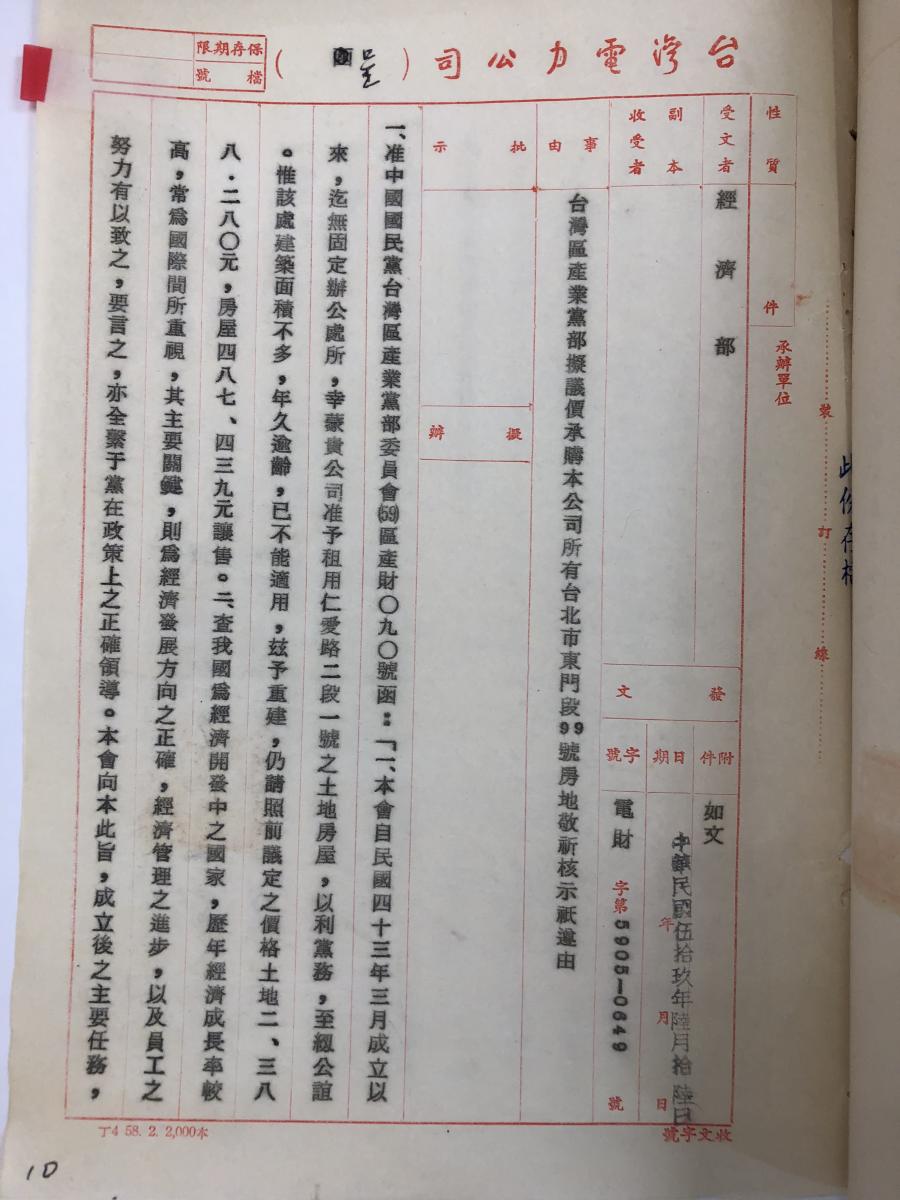 台灣電力公司(呈)
保存期限
檔號
性質
件
承辦單位
受文者
經濟部
副本
收受者
發文
附件
如文
日期
中華民國伍拾玖年陸月拾陸日
年月日
字號
電財字第5905-0649號
事由
台灣區產業黨部擬議價承購本公司所有台北市東門段99號房地敬祈核示祇遵由
批示
擬辦
一、准中國國民黨台灣區產業黨部委員會(59)區產財〇九〇號函:「一、本會自民國四十三年三月成立以
來,迄無固定辦公處所,幸蒙貴公司准予租用仁愛路二段一號之土地房屋,以利黨務,至紉公誼
。惟該處建築面積不多,年久逾齡,已不能適用,玆予重建,仍請照前議定之價格土地二、三八
八.二八〇元,房屋四八七、四三九元讓售。二、查我國爲經濟開發中之國家,歷年經濟成長率較
高,常爲國際間所重視,其主要關鍵,則爲經濟發展方向之正確,經濟管理之進步,以及員工之
努力有以致之,要言之,亦全繫于黨在政策上之正確領導。本會向本此旨,成立後之主要任務,
裝
訂
線
此份存檔
收文字號
丁4 58. 2. 2,000本
10